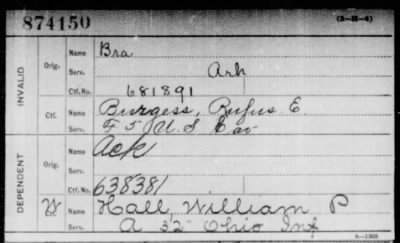 874150 (3-II-4)
INVALID
Orig. Name Bra
Serv. Ark
Ctf. No. 681891
Ctf. Name Burgess, Rufus E
Serv. F 5" U.S Cav
DEPENDENT
Orig. Name Ack
Serv.
Ctf. No. 638381
W Name Hall William P
A 32" Ohio Inf
6-1380